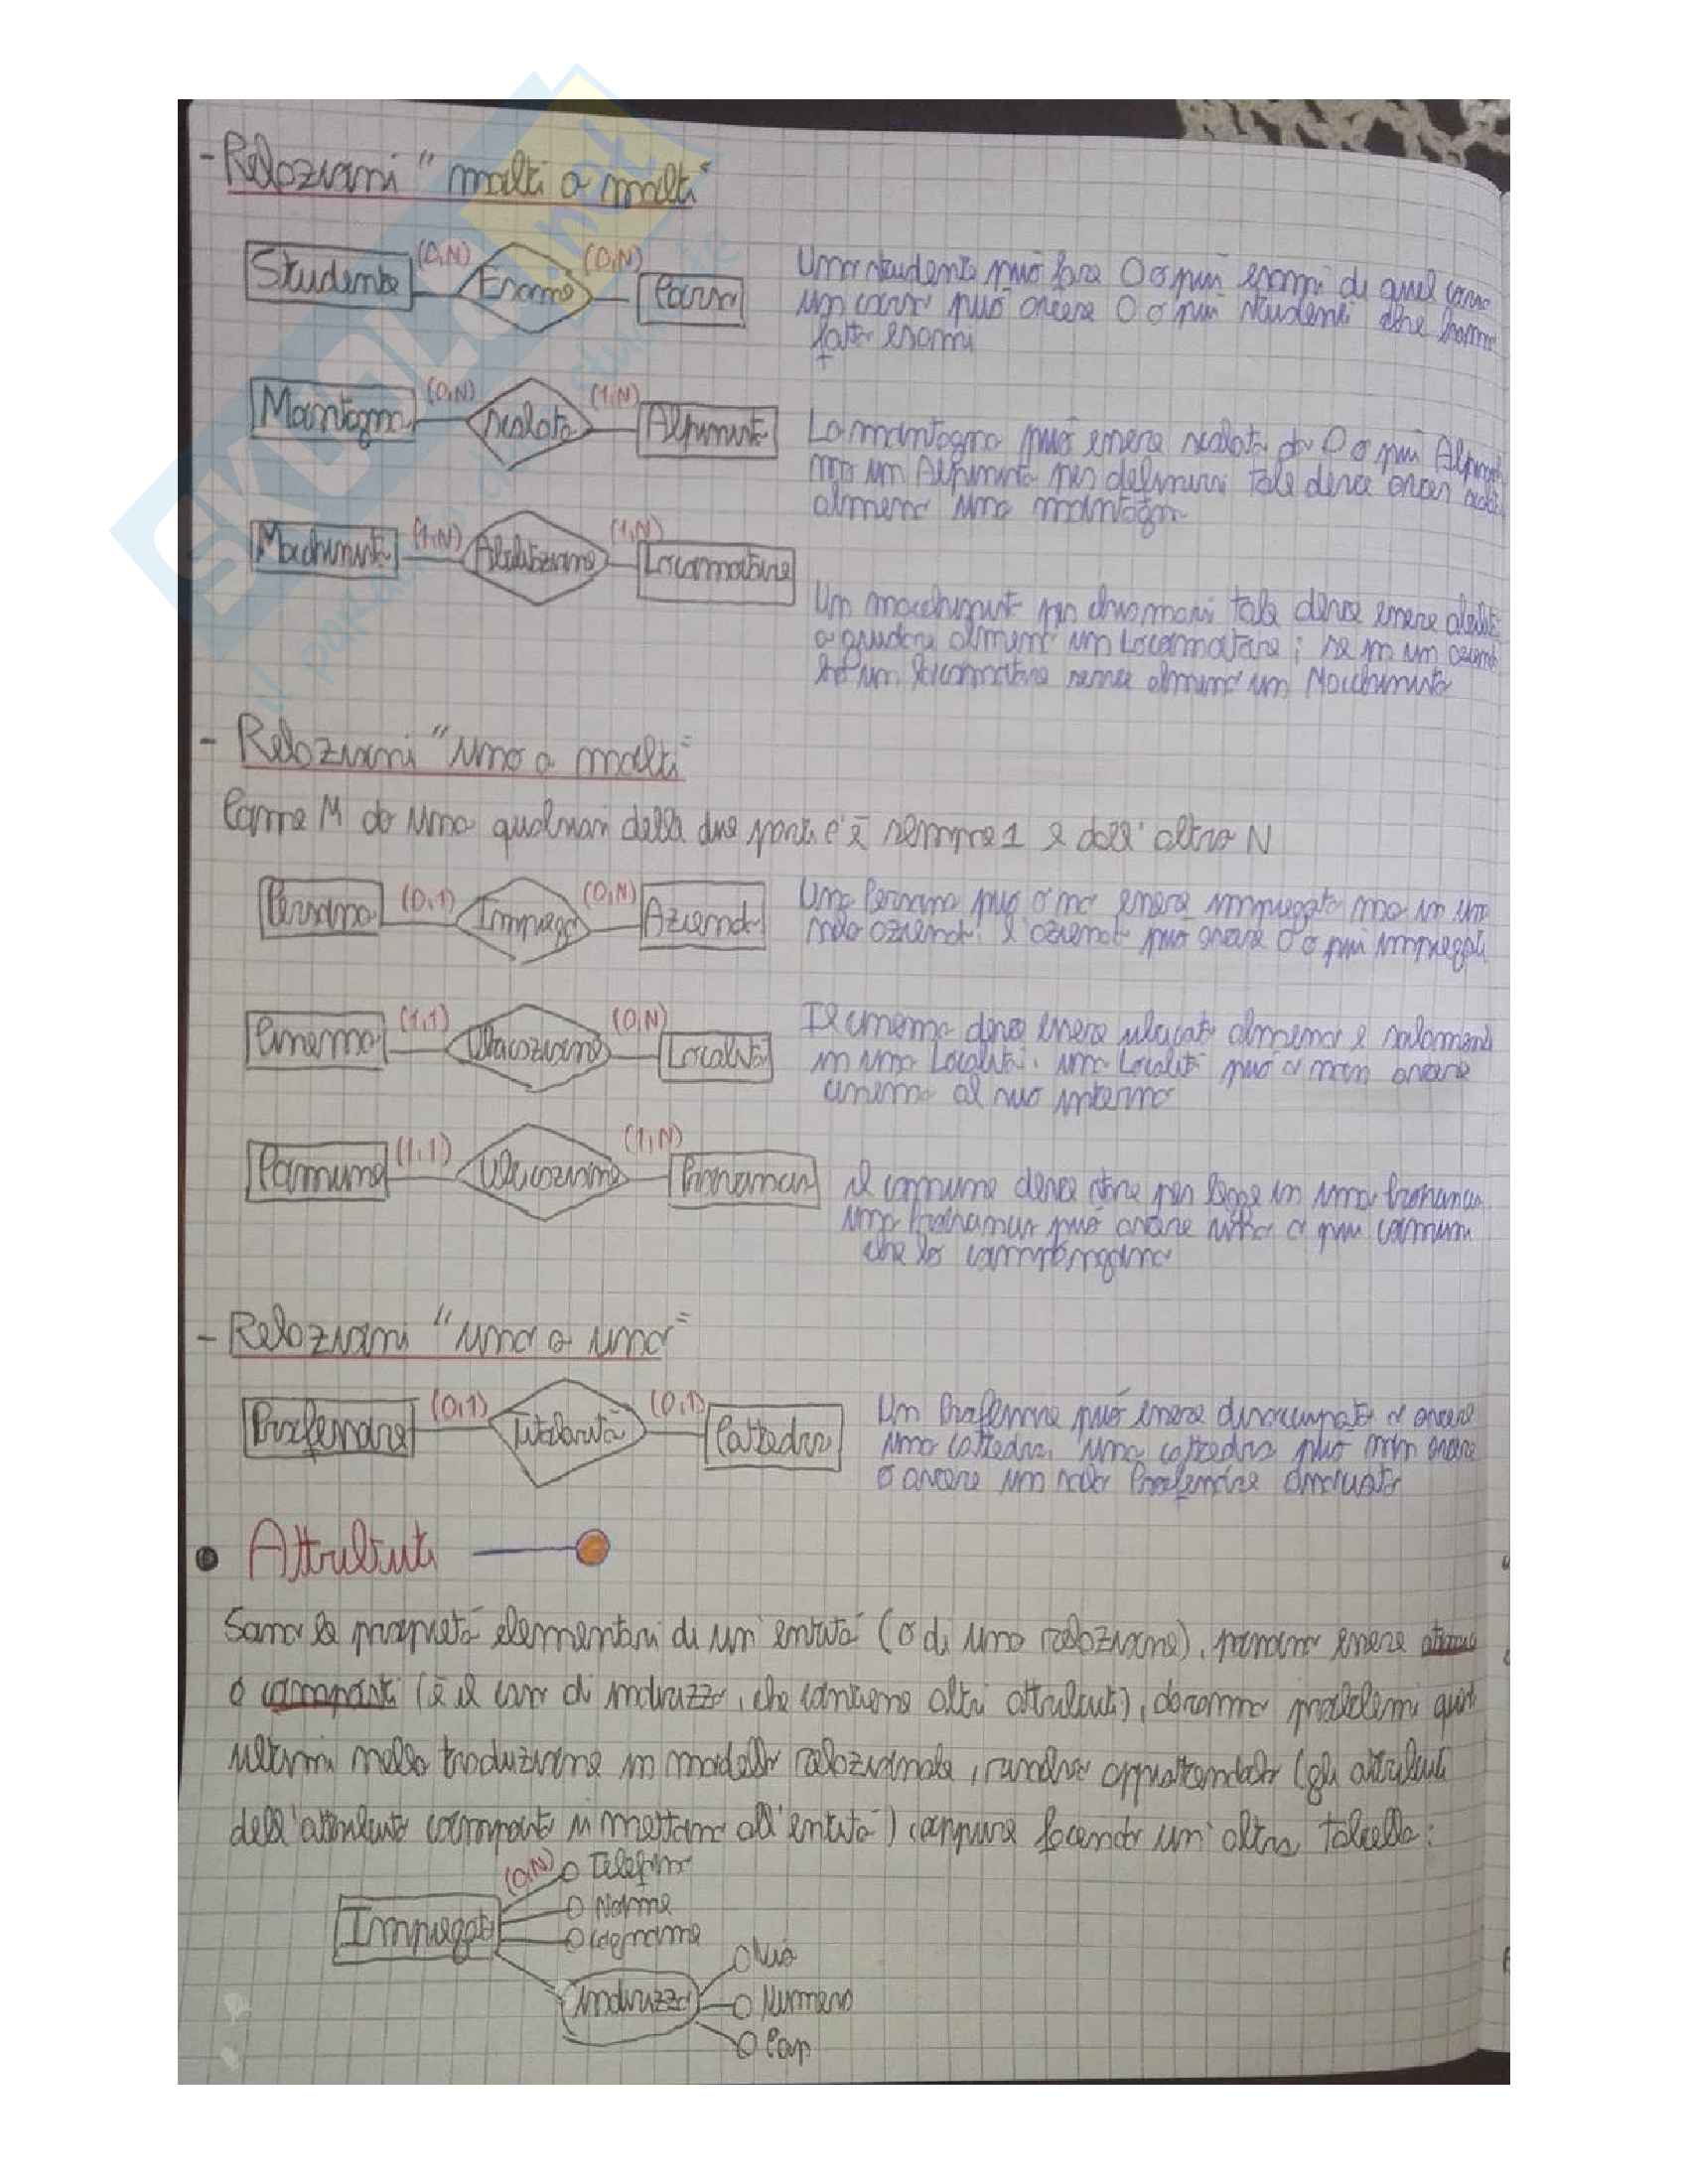 - Relazioni "molti a molti"
Studente (0,N) Esame (0,N) Corso
Uno studente può fare 0 o più esami di quel corso
un corso può avere 0 o più studenti che hanno
fatto esami
Montagna (0,N) Scalata (1,N) Alpinista
La montagna può essere scalata da 0 o più Alpinisti
ma un Alpinista per definirsi tale deve aver
almeno una montagna
Macchinista (1,N) Abilitazione (1,N) Locomotore
Un macchinista per chiamarsi tale deve essere
a guidare almeno un Locomotore; se in un
un locomotore serve almeno un Macchinista
- Relazioni "uno a molti"
Come M da una qualsiasi delle due parti c'è sempre 1 e dall'altra N
Persona (0,1) Impiego (0,N) Azienda
Una Persona può o no essere impiegata ma in una
sola azienda. L'azienda può avere 0 o più impiegati
Cinema (1,1) Ubicazione (0,N) Località
Il cinema deve essere ubicato almeno e solamente
in una Località. una Località può o non avere
cinema al suo interno
Comune (1,1) Ubicazione (1,N) Provincia
il comune deve stare per legge in una Provincia
una Provincia può avere uno o più comuni
che lo compongano
- Relazioni "uno a uno"
Professore (0,1) Titolarità (0,1) Cattedra
Un Professore può essere disoccupato o avere
una cattedra, una cattedra può non avere
o avere un solo Professore associato
• Attributi
Sono le proprietà elementari di un'entità (o di una relazione), possono essere
o composti (è il caso di indirizzo, che contiene altri attributi), daranno problemi questi
ultimi nella traduzione in modello relazionale, (gli attributi
dell'attributo composto si mettono all'entità) oppure facendo un'altra tabella:
(0,N) Telefono
Impiegato
Nome
Cognome
Indirizzo
Via
Numero
Cap